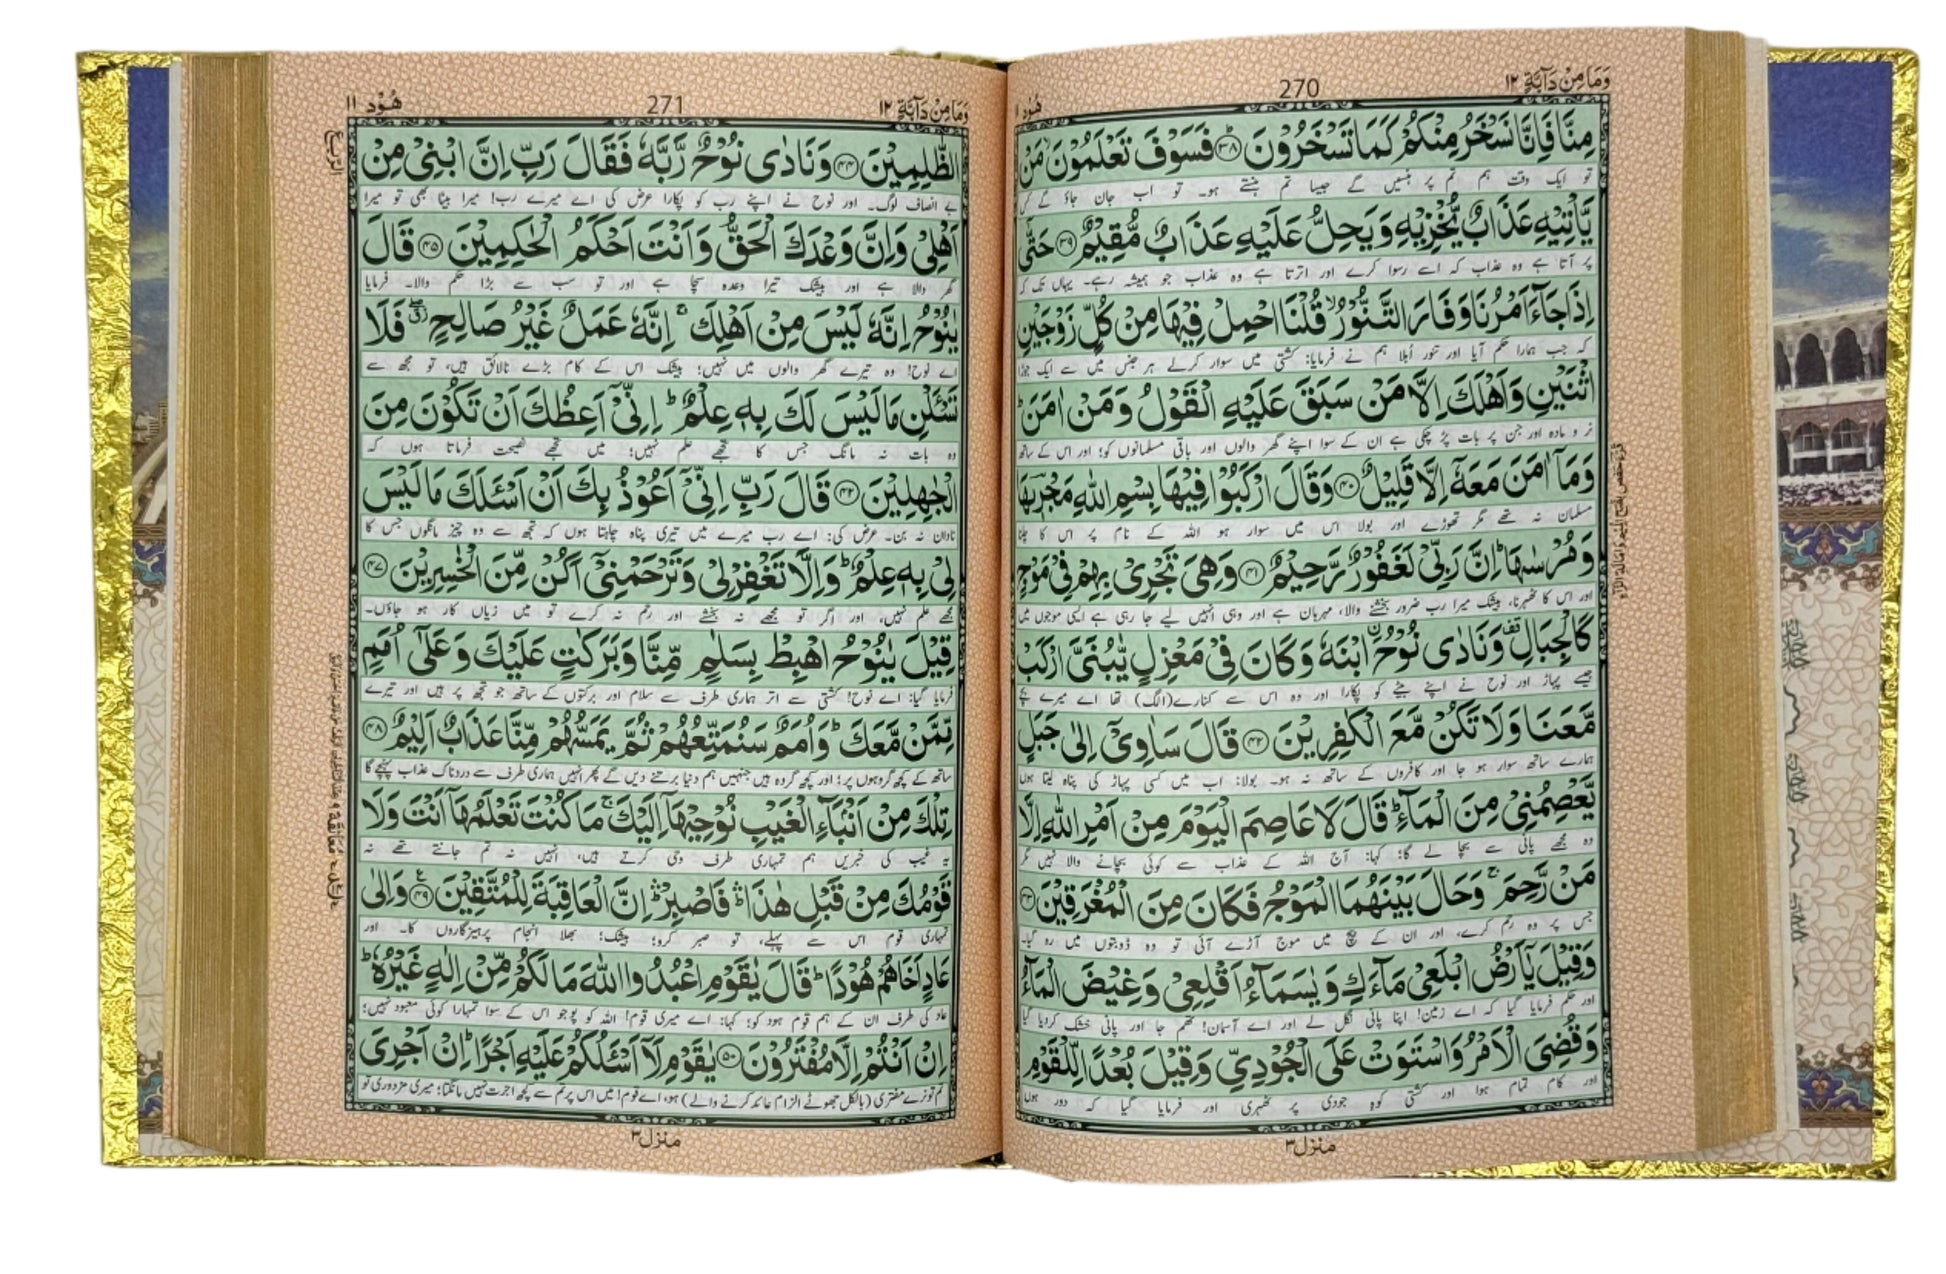 وَمَا مِنْ دَآبَّةٍ ١٢
270
هُود ١١
مِنَّا فَاِنَّا نَسْخَرُ مِنْكُمْ كَمَا تَسْخَرُوْنَ ۟ؕ﴿۳۸﴾ فَسَوْفَ تَعْلَمُوْنَ ۙ مَنْ
تو ایک وقت ہم تم پر ہنسیں گے جیسا تم ہنستے ہو۔ تو اب جان جاؤ گے کس
يَّاْتِيْهِ عَذَابٌ يُّخْزِيْهِ وَيَحِلُّ عَلَيْهِ عَذَابٌ مُّقِيْمٌ ﴿۳۹﴾ حَتّٰٓى
پر آتا ہے وہ عذاب کہ اسے رسوا کرے اور اترتا ہے وہ عذاب جو ہمیشہ رہے۔ یہاں تک کہ
اِذَا جَآءَ اَمْرُنَا وَفَارَ التَّنُّوْرُ ۙ قُلْنَا احْمِلْ فِيْهَا مِنْ كُلٍّ زَوْجَيْنِ
کہ جب ہمارا حکم آیا اور تنور اُبلا ہم نے فرمایا: کشتی میں سوار کرلے ہر جنس میں سے ایک جوڑا
اثْنَيْنِ وَاَهْلَكَ اِلَّا مَنْ سَبَقَ عَلَيْهِ الْقَوْلُ وَمَنْ اٰمَنَ ؕ
نر و مادہ اور جن پر بات پڑ چکی ہے ان کے سوا اپنے گھر والوں اور باقی مسلمانوں کو؛ اور اس کے ساتھ
وَمَآ اٰمَنَ مَعَهٗٓ اِلَّا قَلِيْلٌ ﴿۴۰﴾ وَقَالَ ارْكَبُوْا فِيْهَا بِسْمِ اللّٰهِ مَجْرٖىهَا
مسلمان نہ تھے مگر تھوڑے اور بولا اس میں سوار ہو اللہ کے نام پر اس کا چلنا
وَمُرْسٰىهَا ؕ اِنَّ رَبِّيْ لَغَفُوْرٌ رَّحِيْمٌ ﴿۴۱﴾ وَهِيَ تَجْرِيْ بِهِمْ فِيْ مَوْجٍ
اور اس کا ٹھہرنا، بیشک میرا رب ضرور بخشنے والا، مہربان ہے اور وہی انہیں لیے جا رہی ہے ایسی موجوں میں
كَالْجِبَالِ ۫ وَنَادٰى نُوْحُ ۨابْنَهٗ وَكَانَ فِيْ مَعْزِلٍ يّٰبُنَيَّ ارْكَبْ
جیسے پہاڑ اور نوح نے اپنے بیٹے کو پکارا اور وہ اس سے کنارے(الگ) تھا اے میرے بچے
مَّعَنَا وَلَا تَكُنْ مَّعَ الْكٰفِرِيْنَ ﴿۴۲﴾ قَالَ سَاٰوِيْٓ اِلٰى جَبَلٍ
ہمارے ساتھ سوار ہو جا اور کافروں کے ساتھ نہ ہو۔ بولا: اب میں کسی پہاڑ کی پناہ لیتا ہوں
يَّعْصِمُنِيْ مِنَ الْمَآءِ ؕ قَالَ لَا عَاصِمَ الْيَوْمَ مِنْ اَمْرِ اللّٰهِ اِلَّا
وہ مجھے پانی سے بچا لے گا؛ کہا: آج اللہ کے عذاب سے کوئی بچانے والا نہیں مگر
مَنْ رَّحِمَ ۚ وَحَالَ بَيْنَهُمَا الْمَوْجُ فَكَانَ مِنَ الْمُغْرَقِيْنَ ﴿۴۳﴾
جس پر وہ رحم کرے، اور ان کے بیچ میں موج آڑے آئی تو وہ ڈوبتوں میں رہ گیا۔
وَقِيْلَ يٰٓاَرْضُ ابْلَعِيْ مَآءَكِ وَيٰسَمَآءُ اَقْلِعِيْ وَغِيْضَ الْمَآءُ
اور حکم فرمایا گیا کہ اے زمین! اپنا پانی نگل لے اور اے آسمان! تھم جا اور پانی خشک کردیا گیا
وَقُضِيَ الْاَمْرُ وَاسْتَوَتْ عَلَى الْجُوْدِيِّ وَقِيْلَ بُعْدًا لِّلْقَوْمِ
اور کام تمام ہوا اور کشتی کوہِ جودی پر ٹھہری اور فرمایا گیا کہ دور ہوں
منزل ٣
وَمَا مِنْ دَآبَّةٍ ١٢
271
هُوْد ١١
الظّٰلِمِيْنَ ﴿۴۴﴾ وَنَادٰى نُوْحٌ رَّبَّهٗ فَقَالَ رَبِّ اِنَّ ابْنِيْ مِنْ
بے انصاف لوگ۔ اور نوح نے اپنے رب کو پکارا عرض کی اے میرے رب! میرا بیٹا بھی تو میرا
اَهْلِيْ وَاِنَّ وَعْدَكَ الْحَقُّ وَاَنْتَ اَحْكَمُ الْحٰكِمِيْنَ ﴿۴۵﴾ قَالَ
گھر والا ہے اور بیشک تیرا وعدہ سچا ہے اور تو سب سے بڑا حکم والا۔ فرمایا
يٰنُوْحُ اِنَّهٗ لَيْسَ مِنْ اَهْلِكَ ۚ اِنَّهٗ عَمَلٌ غَيْرُ صَالِحٍ ۖ فَلَا
اے نوح! وہ تیرے گھر والوں میں نہیں؛ بیشک اس کے کام بڑے نالائق ہیں، تو مجھ سے
تَسْـَٔلْنِ مَا لَيْسَ لَكَ بِهٖ عِلْمٌ ؕ اِنِّيْٓ اَعِظُكَ اَنْ تَكُوْنَ مِنَ
وہ بات نہ مانگ جس کا تجھے علم نہیں؛ میں تجھے نصیحت فرماتا ہوں کہ
الْجٰهِلِيْنَ ﴿۴۶﴾ قَالَ رَبِّ اِنِّيْٓ اَعُوْذُ بِكَ اَنْ اَسْـَٔلَكَ مَا لَيْسَ
نادان نہ بن۔ عرض کی: اے رب میرے میں تیری پناہ چاہتا ہوں کہ تجھ سے وہ چیز مانگوں جس کا
لِيْ بِهٖ عِلْمٌ ؕ وَاِلَّا تَغْفِرْ لِيْ وَتَرْحَمْنِيْٓ اَكُنْ مِّنَ الْخٰسِرِيْنَ ﴿۴۷﴾
مجھے علم نہیں، اور اگر تو مجھے نہ بخشے اور رحم نہ کرے تو میں زیاں کار ہو جاؤں۔
قِيْلَ يٰنُوْحُ اهْبِطْ بِسَلٰمٍ مِّنَّا وَبَرَكٰتٍ عَلَيْكَ وَعَلٰٓى اُمَمٍ
فرمایا گیا: اے نوح! کشتی سے اتر ہماری طرف سے سلام اور برکتوں کے ساتھ جو تجھ پر ہیں اور تیرے
مِّمَّنْ مَّعَكَ ؕ وَاُمَمٌ سَنُمَتِّعُهُمْ ثُمَّ يَمَسُّهُمْ مِّنَّا عَذَابٌ اَلِيْمٌ ﴿۴۸﴾
ساتھ کے کچھ گروہوں پر؛ اور کچھ گروہ ہیں جنہیں ہم دنیا برتنے دیں گے پھر انہیں ہماری طرف سے دردناک عذاب پہنچے گا
تِلْكَ مِنْ اَنْۢبَآءِ الْغَيْبِ نُوْحِيْهَآ اِلَيْكَ ۚ مَا كُنْتَ تَعْلَمُهَآ اَنْتَ وَلَا
یہ غیب کی خبریں ہم تمہاری طرف وحی کرتے ہیں، انہیں نہ تم جانتے تھے نہ
قَوْمُكَ مِنْ قَبْلِ هٰذَا ۛؕ فَاصْبِرْ ۛؕ اِنَّ الْعَاقِبَةَ لِلْمُتَّقِيْنَ ﴿۴۹﴾ ع وَاِلٰى
تمہاری قوم اس سے پہلے، تو صبر کرو؛ بیشک؛ بھلا انجام پرہیزگاروں کا۔ اور
عَادٍ اَخَاهُمْ هُوْدًا ؕ قَالَ يٰقَوْمِ اعْبُدُوا اللّٰهَ مَا لَكُمْ مِّنْ اِلٰهٍ غَيْرُهٗ ؕ
عاد کی طرف ان کے ہم قوم ہود کو؛ کہا: اے میری قوم! اللہ کو پوجو اس کے سوا تمہارا کوئی معبود نہیں؛
اِنْ اَنْتُمْ اِلَّا مُفْتَرُوْنَ ﴿۵۰﴾ يٰقَوْمِ لَآ اَسْـَٔلُكُمْ عَلَيْهِ اَجْرًا ؕ اِنْ اَجْرِيَ
تم تو نرے مفتری (بالکل جھوٹے الزام عائد کرنے والے) ہو، اے قوم! میں اس پر تم سے کچھ اجرت نہیں مانگتا؛ میری مزدوری تو
منزل ٣